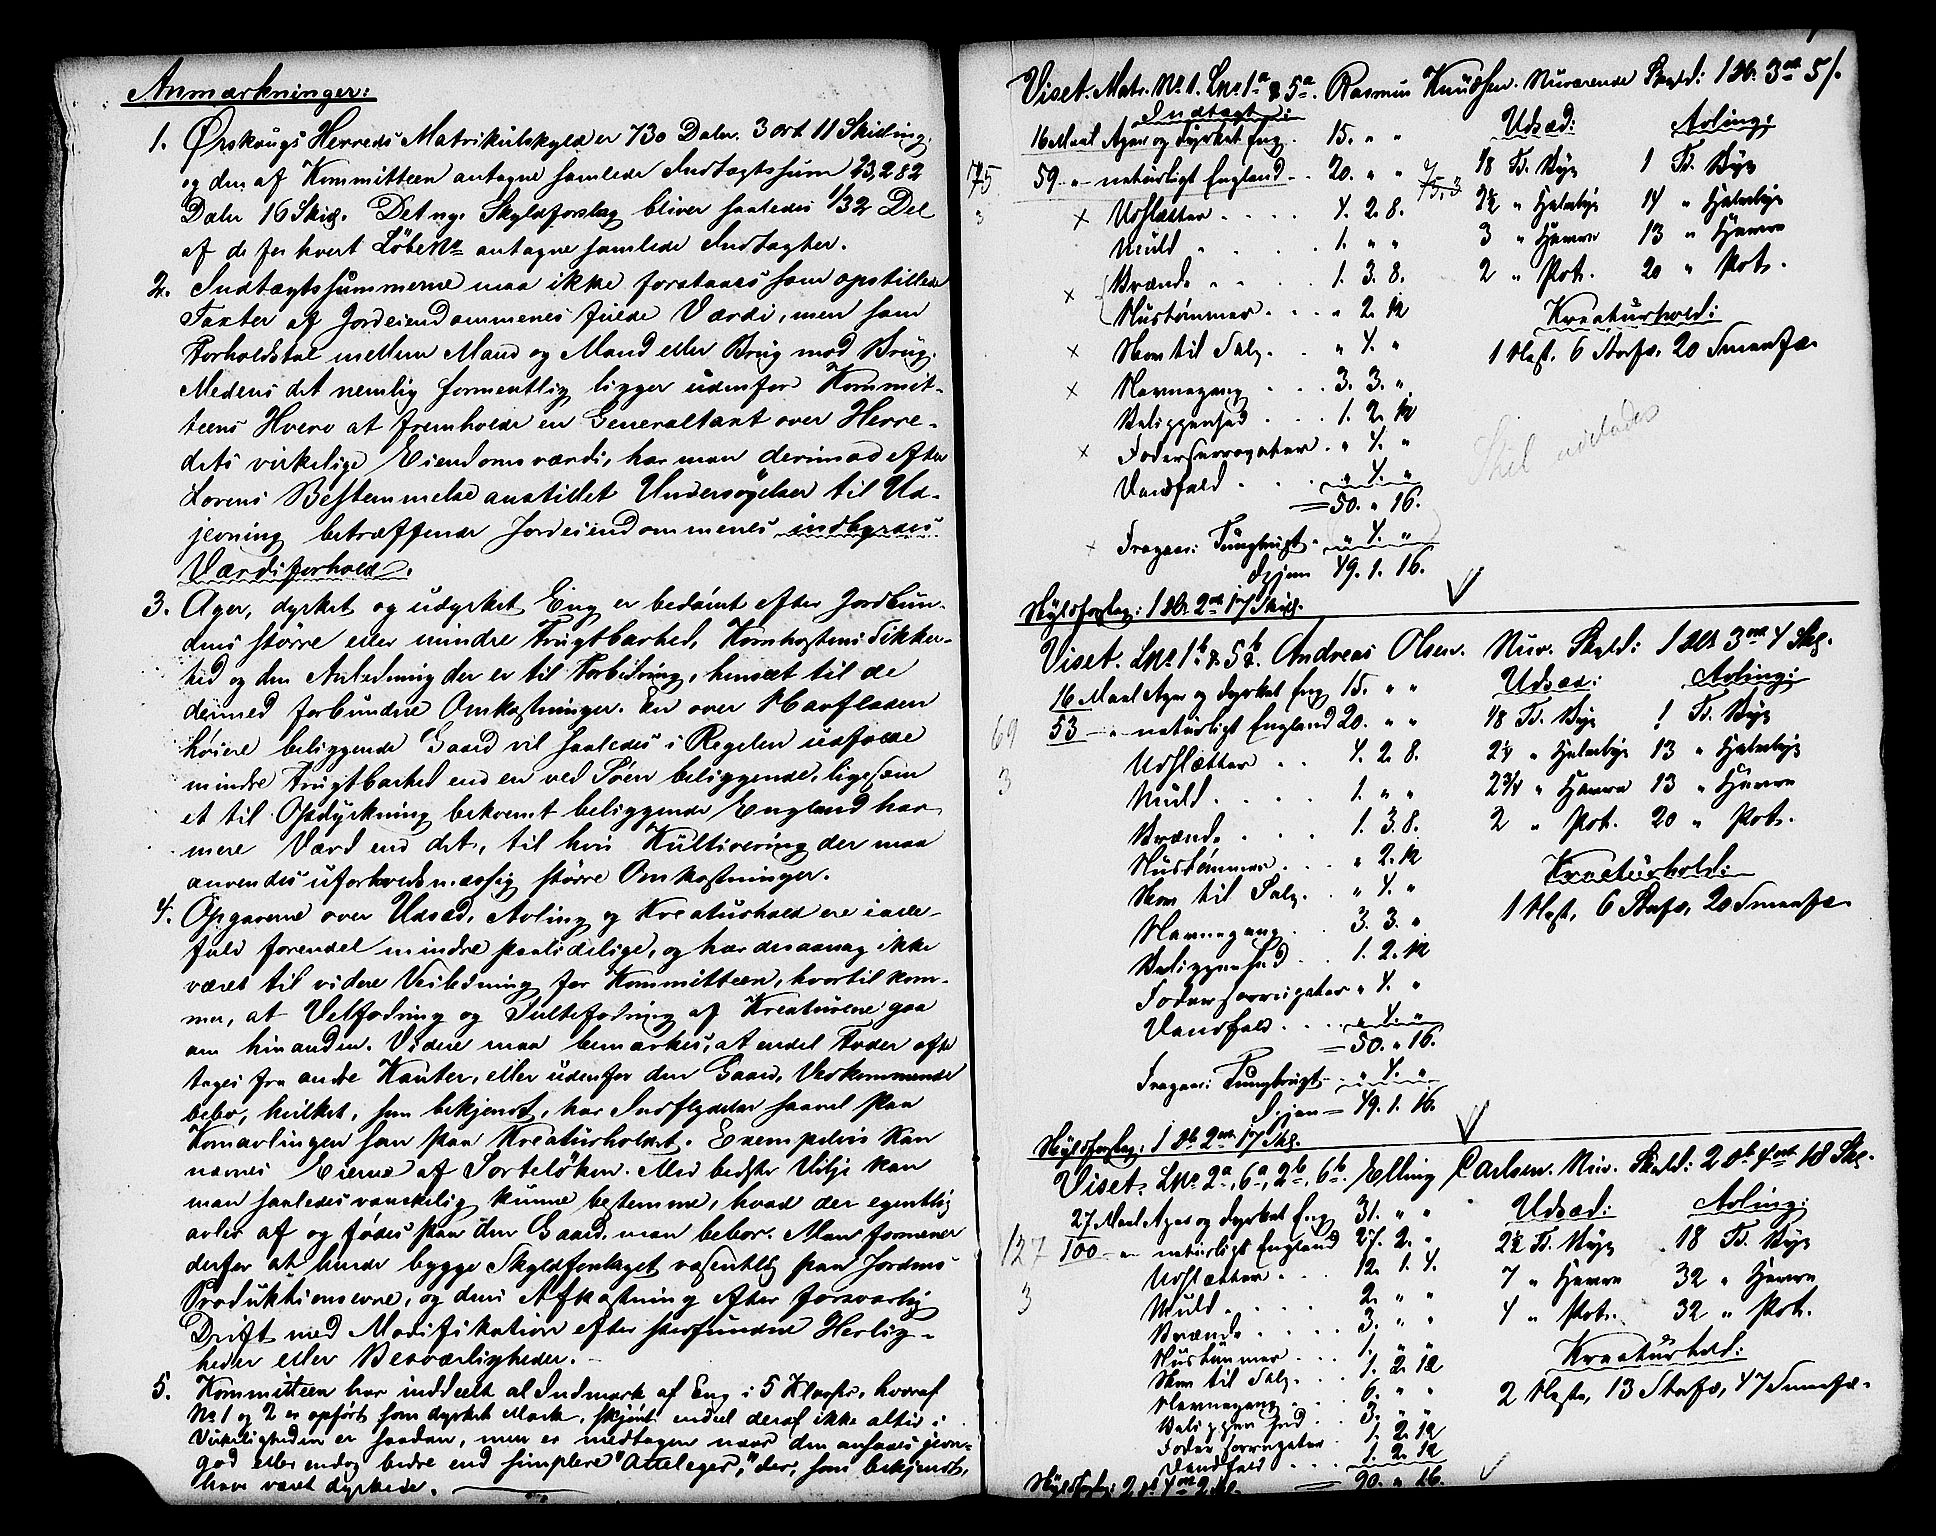 Anmærkninger:
1. Ørskougs Herreds Matrikulskyld er 730 Daler. 3 ort 11 Skilling.
og den af Kommitteen antagne samlede Indtægtssum 23,282
Daler 16 Skill. Det nye Skyldforslag bliver saaledes 1/32 Del
af de for hvert Løbe No antagne samlede Indtægter.
2. Indtægtssummerne maa ikke forstaaes som opstillede
Taxter af Jordeiendommenes fulde Værdi, men som
Forholdstal mellem Mand og Mand eller Brug mod Brug.
Medens det nemlig formentlig ligger udenfor Kommit-
teens Hverv at fremholde en Generaltaxt over Herre-
dets virkelige Eiendomsværdi, har man derimod efter
Lovens Bestemmelse anstillet Undersøgelser til Ud-
jevning betræffende Jordeiendommenes indbyrdes
Værdiforhold.
3. Ager, dyrket og udyrket Eng er bedømt efter Jordbun-
dens større eller mindre Frugtbarhed, Kornhøstens Sikker-
hed og den Anledning der er til Forbedring, henseet til de
dermed forbundne Omkostninger. En over Havfladen
høiere beliggende Gaard vil saaledes i Regelen udfolde
mindre Frugtbarhed end en ved Søen beliggende, ligesom
et til Opdyrkning bekvemt beliggende England har
mere Værd end det, til hvis Kultivering der maa
anvendes uforholdsmæssig større Omkostninger.
4. Opgaverne over Udsæd, Avling og Kreaturhold ere i al-
fald forendel mindre paalidelige, og har desaarsag ikke
været til videre Veiledning for Kommitteen, hvortil kom-
mer, at Velfodring og Sultefodring af Kreaturene gaa
om hinanden. Videre maa bemærkes, at endel Foder ofte
tages fra andre Kanter, eller udenfor den Gaard, Vedkommende
bebor, hvilket, som bekjendt, har Indflydelse saavel paa
Kornavlingen som paa Kreaturholdet. Exempelvis kan
nævnes Eierne af Sorteløken. Med bedste Vilje kan
man saaledes vanskelig kunne bestemme, hvad der egentlig
avles af og fødes paa den Gaard, man bebor. Man formener
derfor at burde bygge Skyldforslaget væsentlig paa Jordens
Produktionsevne, og dens Afkastning efter forsvarlig
Drift med Modifikation efter stedfundne Herlig-
heder eller Besværligheder.
5. Kommitteen har inddeelt al Indmark af Eng i 5 Klasser, hvoraf
No 1 og 2 er opført som dyrket Mark, skjønt endeel deraf ikke altid i
Virkeligheden er saadan, men er medtagen naar den ansaaes jevn-
god eller endog bedre end simplere "Atteleger", der, som bekjendt,
have været dyrkede.
Viset. Matr. No 1. LNo 1a & 5a. Rasmus Knudsen. Nuværende Skyld: 1 Dlr. 3 ort 5 s.
Indtægt: Udsæd: Avling:
16 Maal Ager og dyrket Eng. 15. " "
75 59 " - naturligt England 20. " " 1/8 Td. Byg 1 Td. Byg
3 x Udslætter 4. 2. 8. 2½ " Halvbyg 14 " Halvbyg
Muld 1. " " 3 " Havre 13 " Havre
x Brænde 1. 3. 8. 2 " Pot. 20 " Pot.
Hustømmer " 2. 12
Kreaturhold:
x Skov til Salg " 4. "
1 Hest. 6 Storfæ, 20 Smaafæ.
x Havnegang 3. 3. "
Beliggenhed 1. 2. 12
x Fodersurrogater " 4. "
Vandfald " 4. "
= 50. " 16.
x Fragaar: Tungbrugt " 4. "
Igjen 49. 1. 16.
Skyldforslag: 1 Dlr. 2 ort 17 Skill.
Viset. LNo 1b & 5b. Andreas Olsen. Nuv. Skyld: 1 Dlr 3 ort 4 Skg.
16 Maal Ager og dyrket Eng 15. " " Udsæd: Avling:
69 53 - " - naturligt England 20. " " 1/8 Td. Byg 1 Td. Byg
Udslætter 4. 2. 8. 2¼ " Halvbyg 13 " Halvbyg
3 Muld 1. " " 2¾ " Havre 13 " Havre
Brænde 1. 3. 8. 2 " Pot. 20 " Pot.
Hustømmer " 2. 12
Kreaturhold:
Skov til Salg " 4. "
1 Hest, 6 Storfæ, 20 Smaafæ.
Havnegang 3. 3. "
Beliggenhed 1. 2. 12
Fodersurrogater " 4. "
Vandfald " 4. "
= 50. " 16.
Fragaar: Tungbrugt " 4. "
Igjen = 49. 1. 16.
Skyldforslag: 1 Dlr 2 ort 17 Skg.
Viset. LNo 2a, 6a, 2b, 6b. Elling Carlsen. Nuv. Skyld: 2 Dlr 4 ort 18 Skg.
27 Maal Ager og dyrket Eng 31. " " Udsæd: Avling:
127 100 - " naturligt England 27. 2. " 2½ Td. Byg 18 Td. Byg
Udslætter 12. 1. 4. 7 " Havre 32 " Havre
3 Muld 2. " " 4 " Pot. 32 " Pot.
Brænde 3. " "
Hustømmer 1. " "
Kreaturhold:
Skov til Salg 1. 2. 12
2 Heste, 13 Storfæ, 47 Smaafæ.
Havnegang 6. " "
Beliggenhed 3. " "
Fodersurrogater 1. 2. 12
Vandfald 1. 2. 12
= 90. " 16.